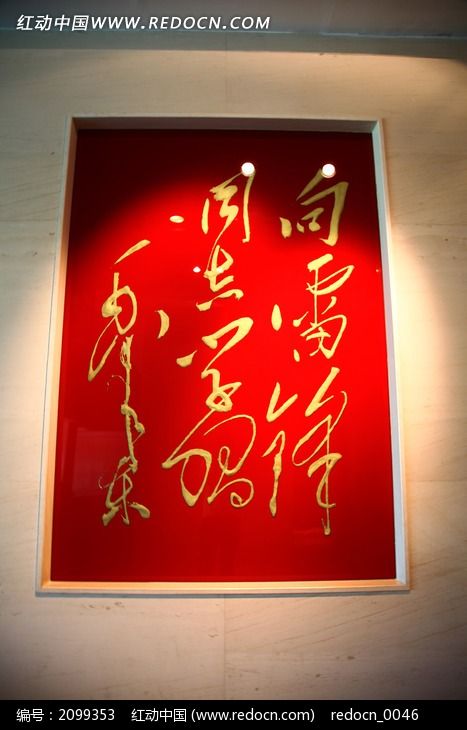 红动中国 WWW.REDOCN.COM
向雷锋
同志学习
毛泽东
编号：2099353 红动中国 (www.redocn.com) redocn_0046